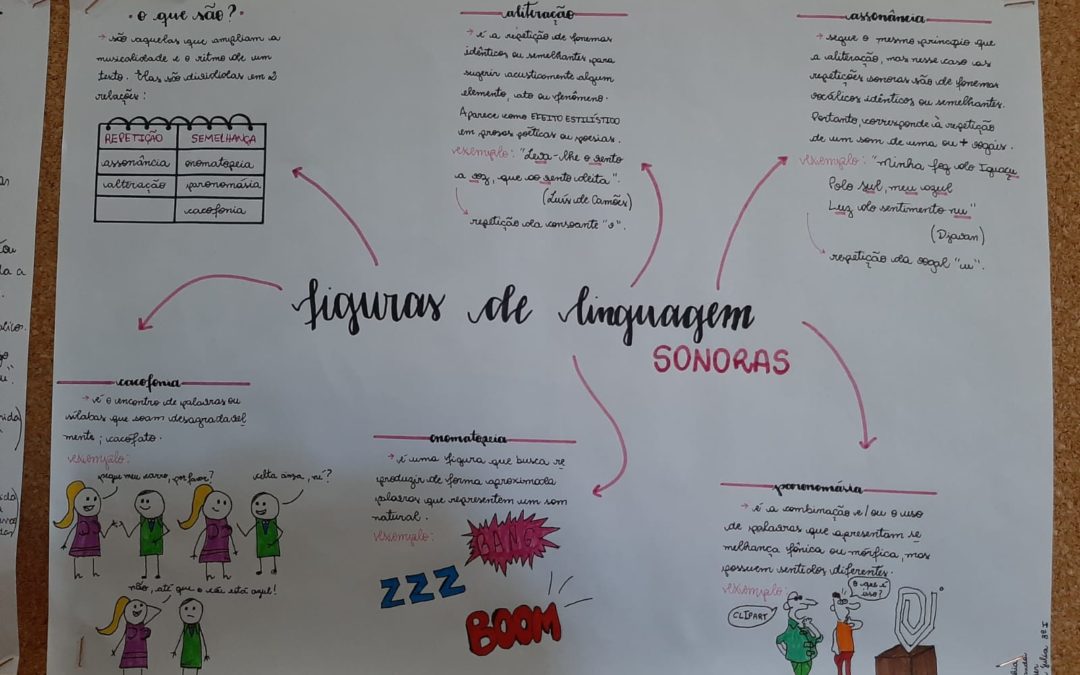 • o que são? •
→ são aquelas que ampliam a
musicalidade e o ritmo de um
texto. Elas são divididas em 2
relações:
REPETIÇÃO SEMELHANÇA
assonância onomatopeia
aliteração paronomásia
cacofonia
aliteração
→ é a repetição de fonemas
idênticos ou semelhantes para
sugerir acusticamente algum
elemento, ato ou fenômeno.
Aparece como EFEITO ESTILÍSTICO
em prosas poéticas ou poesias.
exemplo: "Leva-lhe o vento
a voz, que ao vento deita".
(Luís de Camões)
repetição da consoante "v".
assonância
→ segue o mesmo princípio que
a aliteração, mas nesse caso as
repetições sonoras são de fonemas
vocálicos idênticos ou semelhantes.
Portanto, corresponde à repetição
de um som de uma ou + vogais.
exemplo: "Minha foz do Iguaçu
Polo sul, meu azul
Luz do sentimento nu"
(Djavan)
repetição da vogal "u".
figuras de linguagem
SONORAS
cacofonia
→ é o encontro de palavras ou
sílabas que soam desagradavel
mente; cacofato.
exemplo:
pegue meu carro, por favor?
volta ansa, né?
não, até que o céu está azul!
onomatopeia
→ é uma figura que busca re
produzir de forma aproximada
palavras que representem um som
natural.
exemplo:
BANG
ZZZ
BOOM
paronomásia
→ é a combinação e/ou o uso
de palavras que apresentam se
melhança fônica ou mórfica, mas
possuem sentidos diferentes.
exemplo:
CLIPART
O que é isso?
Julia 8º I